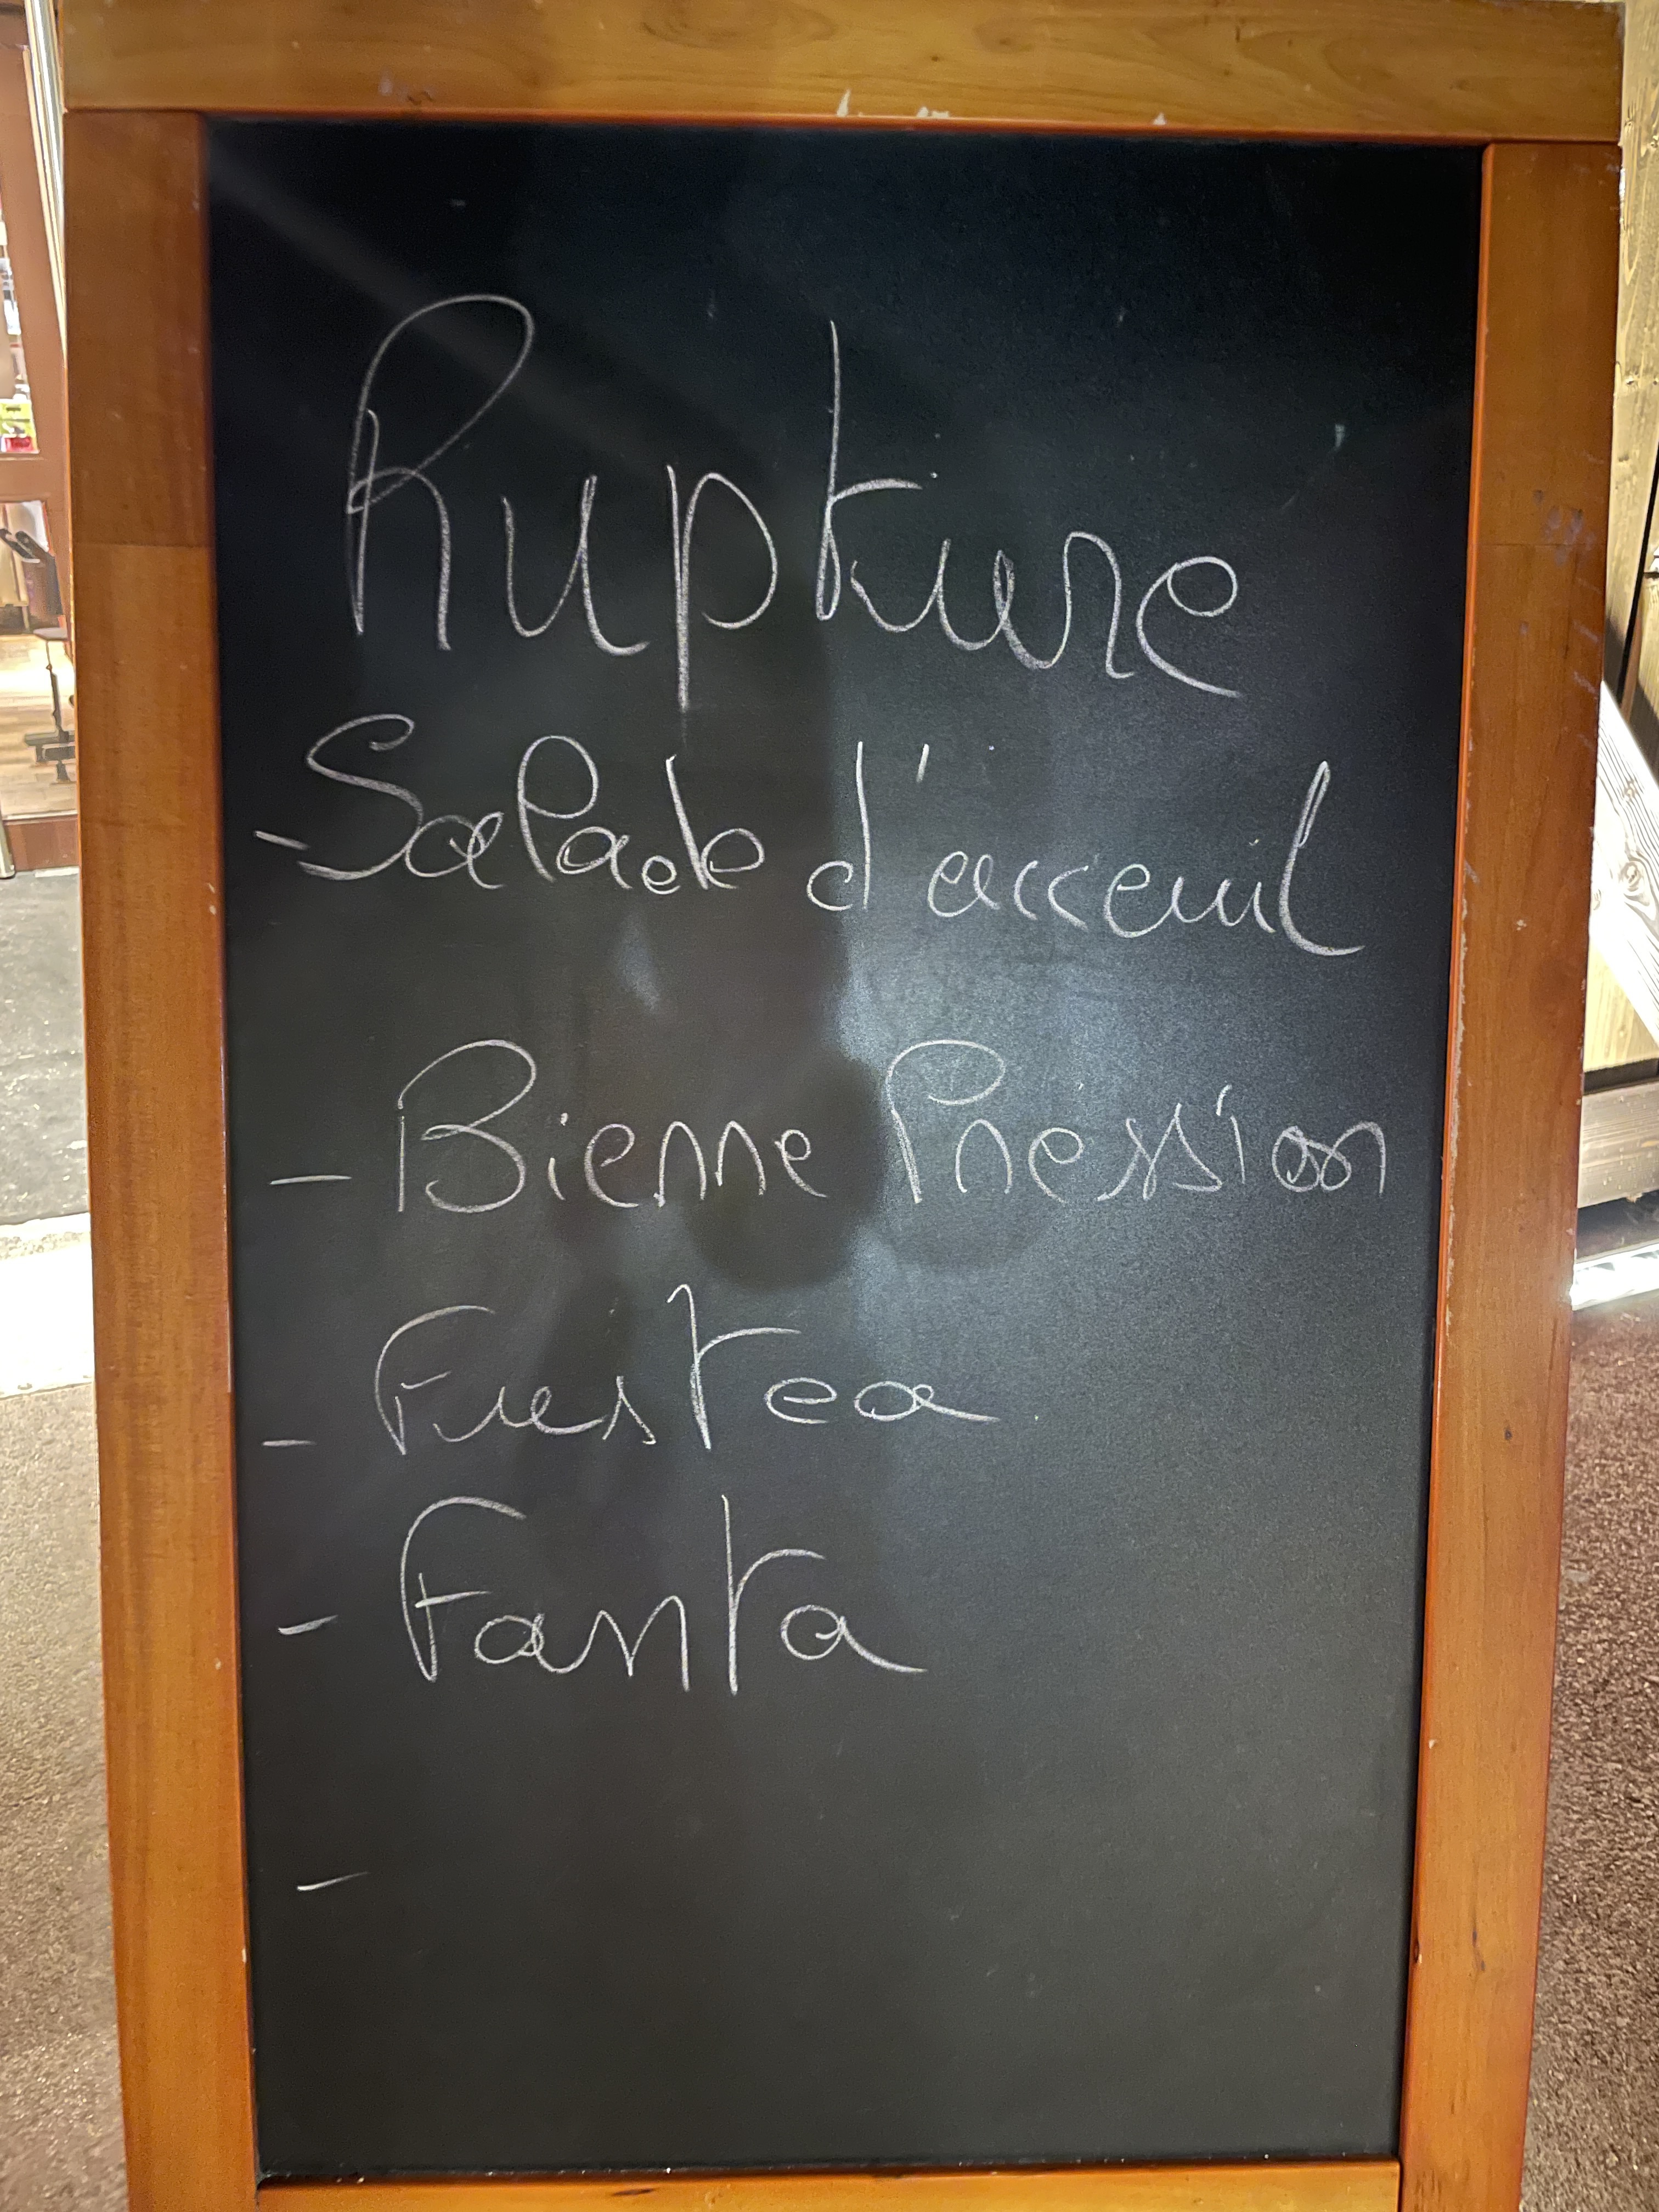 Rupture
- Salade d'acceuil
- Bierre Pression
- Fuestea
- Fanta
-